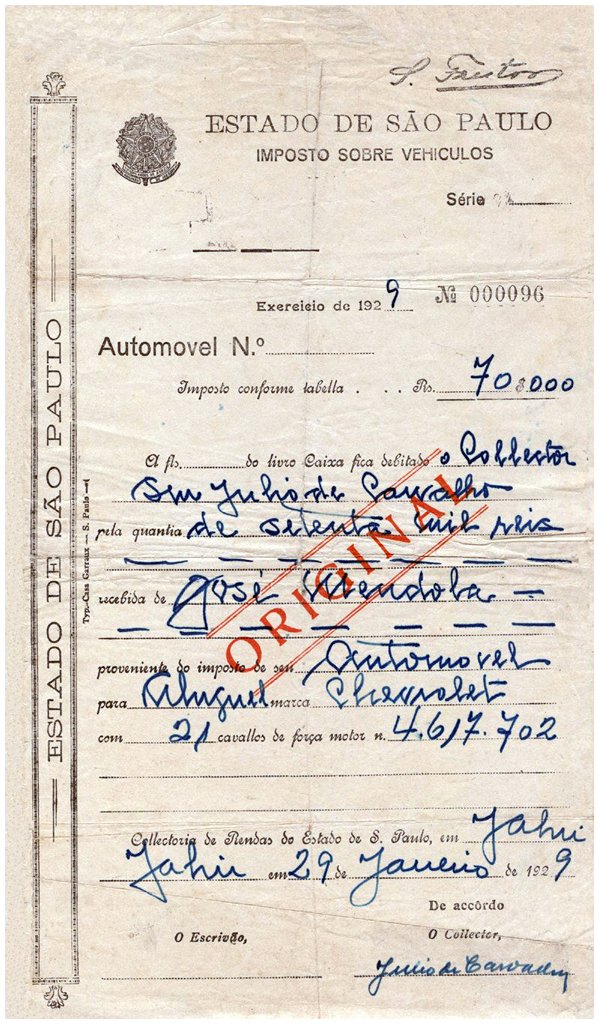 S. Freitas
ESTADO DE SÃO PAULO
IMPOSTO SOBRE VEHICULOS
Série
Exercicio de 1929 № 000096
Automovel N.º
Imposto conforme tabella . . . Rs. 70$000
A fls. do livro Caixa fica debitado o Collector
Snr Julio de Carvalho
pela quantia de setenta mil reis
recebida de José Mendola
proveniente do imposto de seu Automovel
para Aluguel marca Chevrolet
com 21 cavallos de força motor n. 4.617.702
ORIGINAL
Collectoria de Rendas do Estado de S. Paulo, em Jahu
Jahu em 29 de Janeiro de 1929
De accôrdo
O Escrivão, O Collector,
Julio de Carvalho
ESTADO DE SÃO PAULO
Typ.-Casa Garraux — S. Paulo